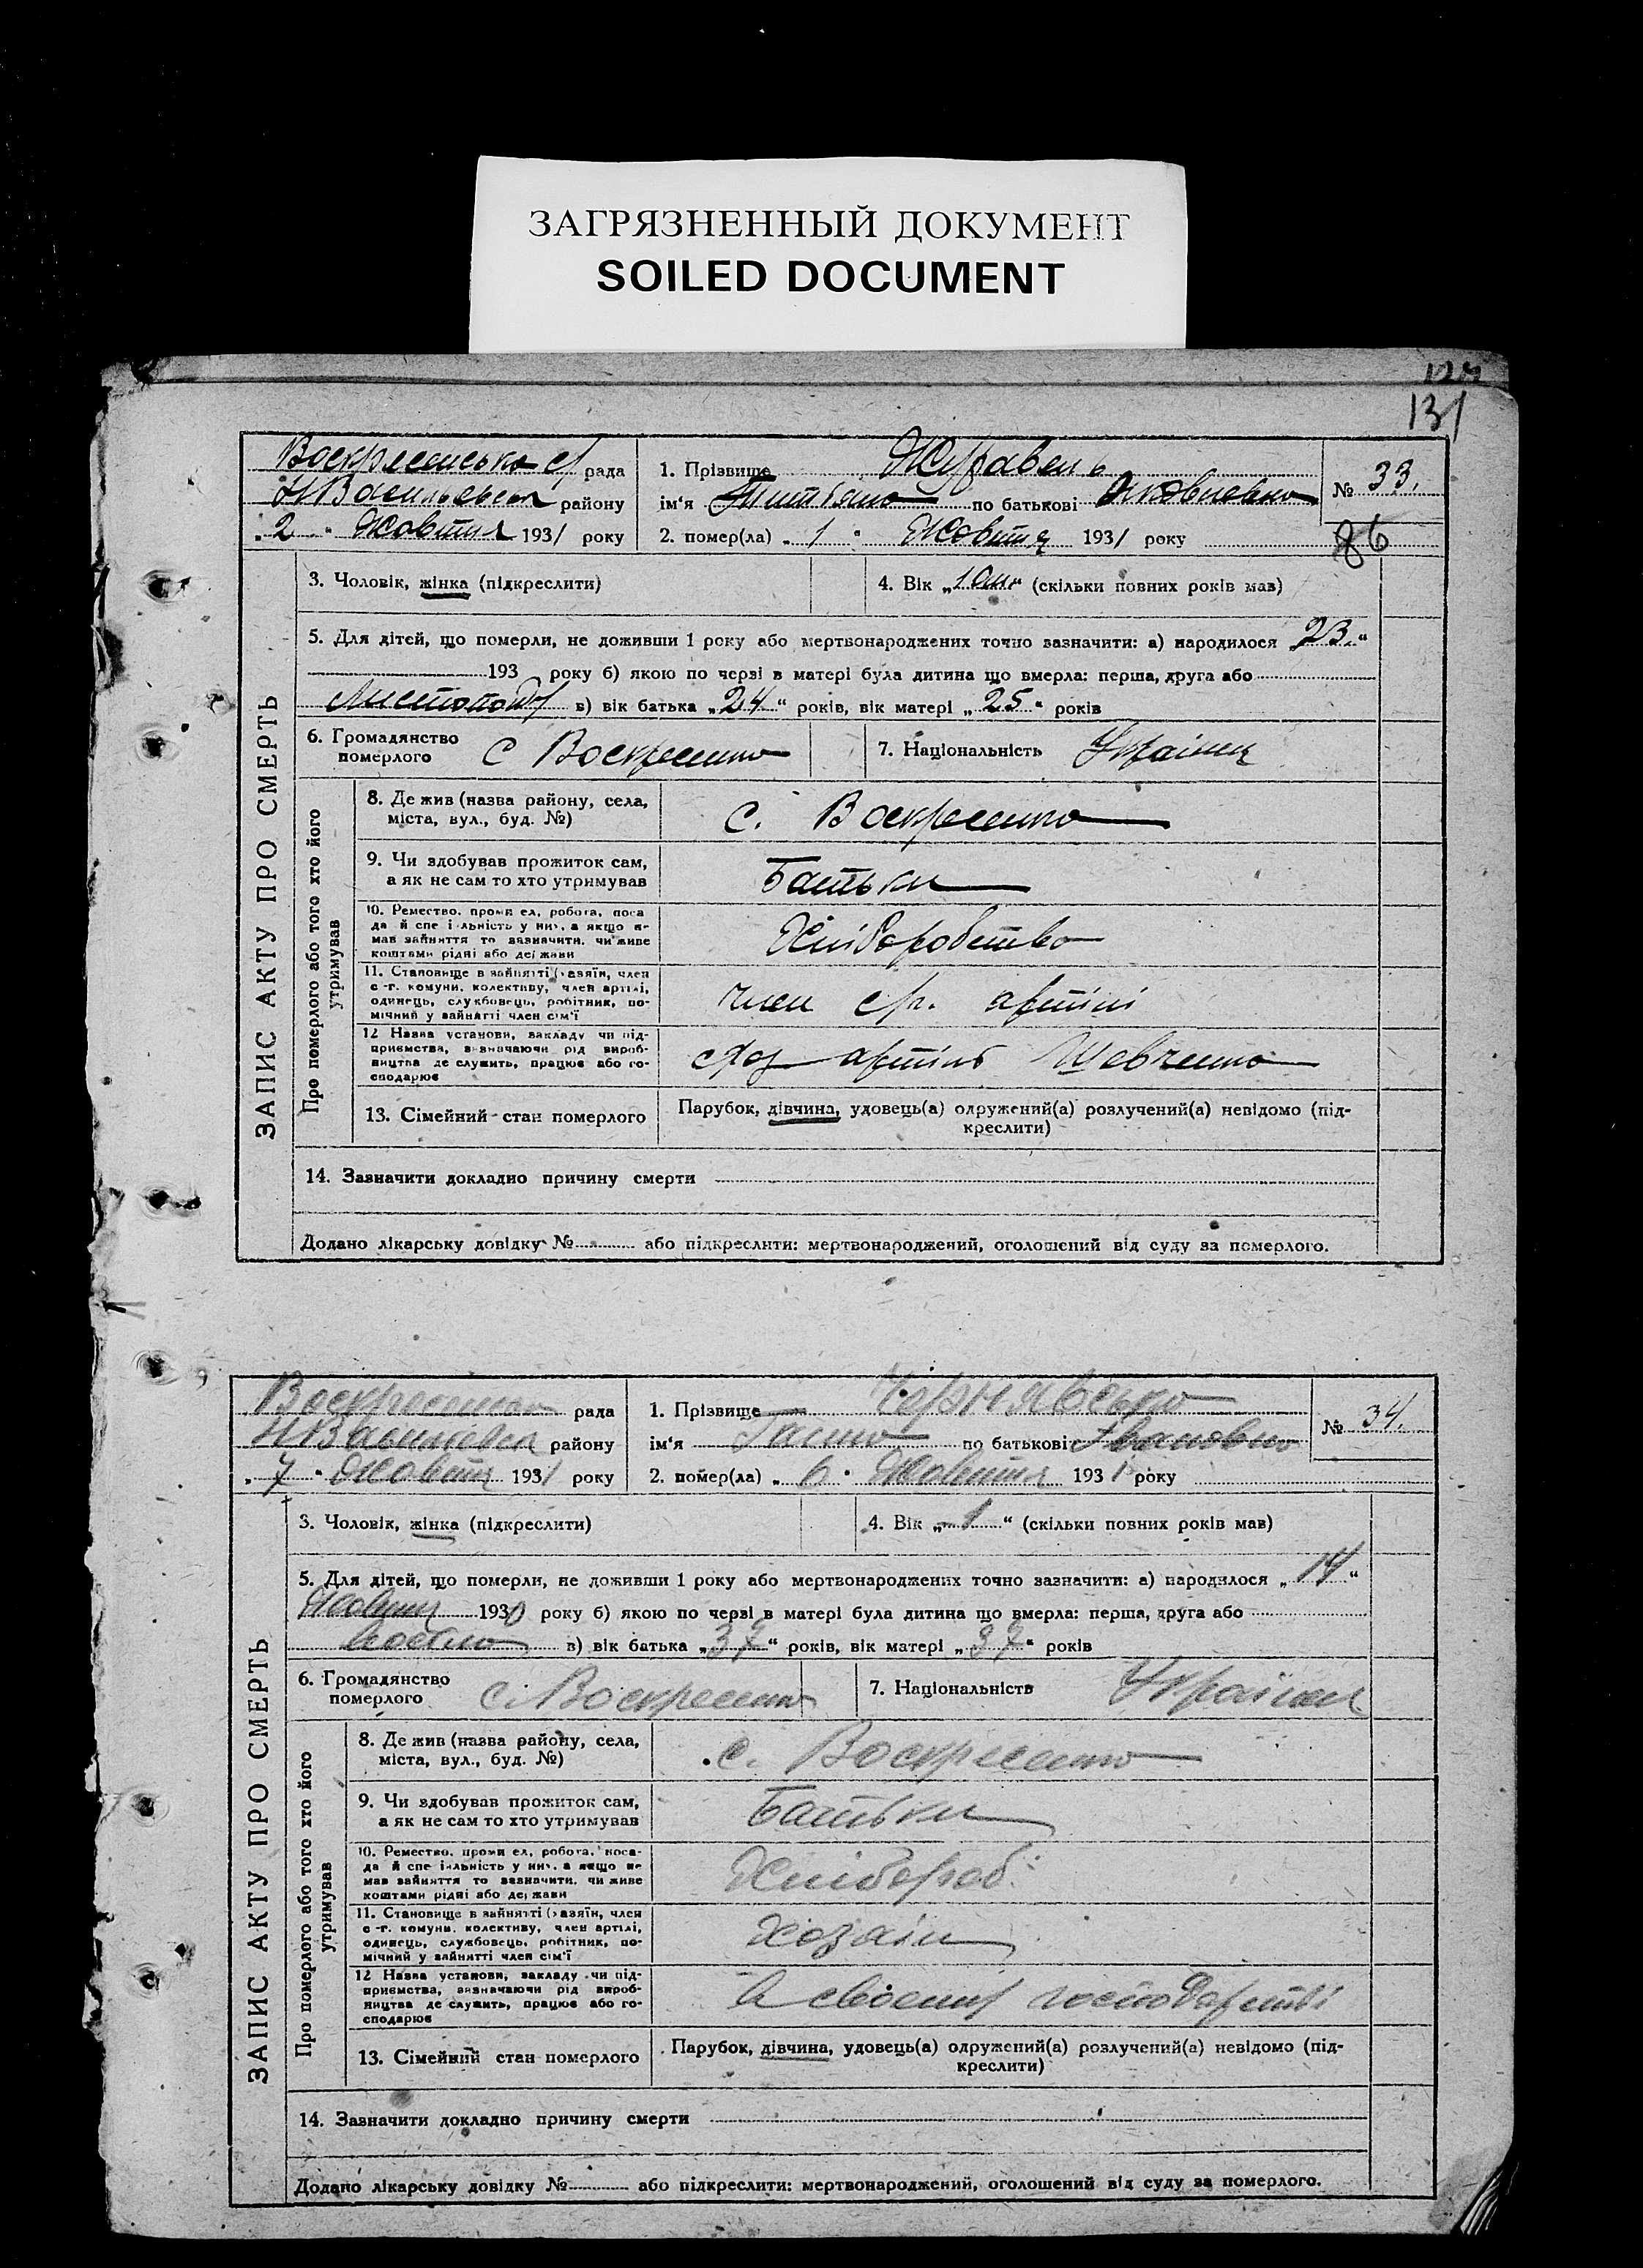 ЗАГРЯЗНЕННЫЙ ДОКУМЕНТ
SOILED DOCUMENT
131
рада
району
"2" Жовтня 1931 року
1. Прізвище Журавель
ім'я по батькові Яковлевна
2. помер(ла) "1" Жовтня 1931 року
№ 33.
86
ЗАПИС АКТУ ПРО СМЕРТЬ
3. Чоловік, жінка (підкреслити)
4. Вік „ “ (скільки повних років мав)
5. Для дітей, що померли, не доживши 1 року або мертвонароджених точно зазначити: а) народилося „23.“
193 року б) якою по черзі в матері була дитина що вмерла: перша, друга або
Листопад в) вік батька „24“ років, вік матері „25“ років
6. Громадянство померлого с Воскресенка
7. Національність Українец
Про померлого або того хто його утримував
8. Де жив (назва району, села, міста, вул., буд. №) с. Воскресенка
9. Чи здобував прожиток сам, а як не сам то хто утримував Батьки
10. Ремество, промисел, робота, поса да й спеціяльність у них, а якщо не мав зайняття то зазначити, чи живе коштами рідні або держави Хліборобство
11. Становище в зайнятті (хазяїн, член с.-г. комуни, колективу, член артілі, одинець, службовець, робітник, помічний у зайнятті член сім'ї член артілі
12 Назва установи, закладу чи підприємства, визначаючи рід виробництва де служить, працює або господарює артіль Шевченко
13. Сімейний стан померлого Парубок, дівчина, удовець(а) одружений(а) розлучений(а) невідомо (підкреслити)
14. Зазначити докладно причину смерти
Додано лікарську довідку № або підкреслити: мертвонароджений, оголошений від суду за померлого.
рада
району
"7" Жовтня 1931 року
1. Прізвище Чернявська
ім'я по батькові Івановна
2. помер(ла) "6" Жовтня 1931 року
№ 34.
ЗАПИС АКТУ ПРО СМЕРТЬ
3. Чоловік, жінка (підкреслити)
4. Вік „1“ (скільки повних років мав)
5. Для дітей, що померли, не доживши 1 року або мертвонароджених точно зазначити: а) народилося „14“
Жовтня 1930 року б) якою по черзі в матері була дитина що вмерла: перша, друга або
в) вік батька „37“ років, вік матері „37“ років
6. Громадянство померлого с. Воскресенка
7. Національність Українец
Про померлого або того хто його утримував
8. Де жив (назва району, села, міста, вул., буд. №) с. Воскресенка
9. Чи здобував прожиток сам, а як не сам то хто утримував Батьки
10. Ремество, промисел, робота, посада й спеціяльність у них, а якщо не мав зайняття то зазначити, чи живе коштами рідні або держави Хлібороб.
11. Становище в зайнятті (хазяїн, член с.-г. комуни, колективу, член артілі, одинець, службовець, робітник, помічний у зайнятті член сім'ї Хозаін
12 Назва установи, закладу чи підприємства, визначаючи рід виробництва де служить, працює або господарює В своему господарстві
13. Сімейний стан померлого Парубок, дівчина, удовець(а) одружений(а) розлучений(а) невідомо (підкреслити)
14. Зазначити докладно причину смерти
Додано лікарську довідку № або підкреслити: мертвонароджений, оголошений від суду за померлого.